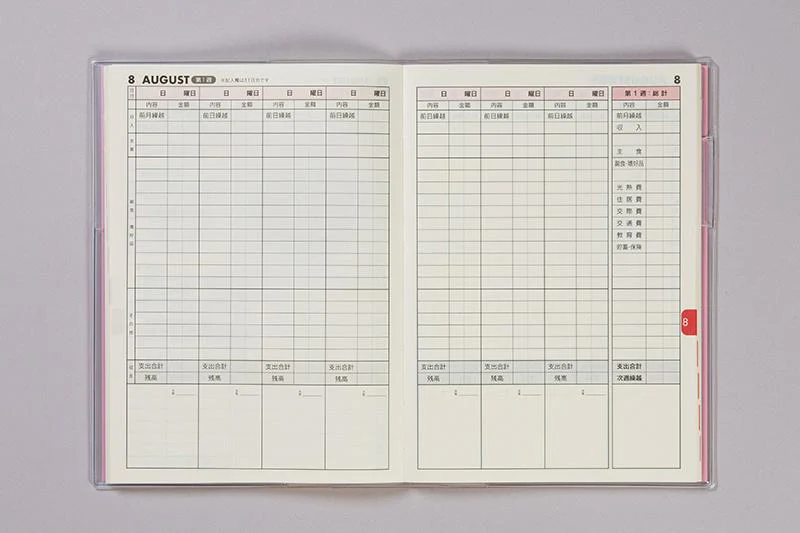 8 AUGUST 第1週 ※記入欄は31日分です
日付 日 曜日 日 曜日 日 曜日 日 曜日
内容 金額 内容 金額 内容 金額 内容 金額
収入 前月繰越 前日繰越 前日繰越 前日繰越
主食
副食・嗜好品
その他
支出合計 支出合計 支出合計 支出合計
残高 残高 残高 残高
8
日 曜日 日 曜日 日 曜日 第1週 総計
内容 金額 内容 金額 内容 金額 内容 金額
前日繰越 前日繰越 前日繰越 前月繰越
収入
主食
副食・嗜好品
光熱費
住居費
交際費
交通費
教育費
貯蓄・保険
8
支出合計 支出合計 支出合計 支出合計
残高 残高 残高 次週繰越